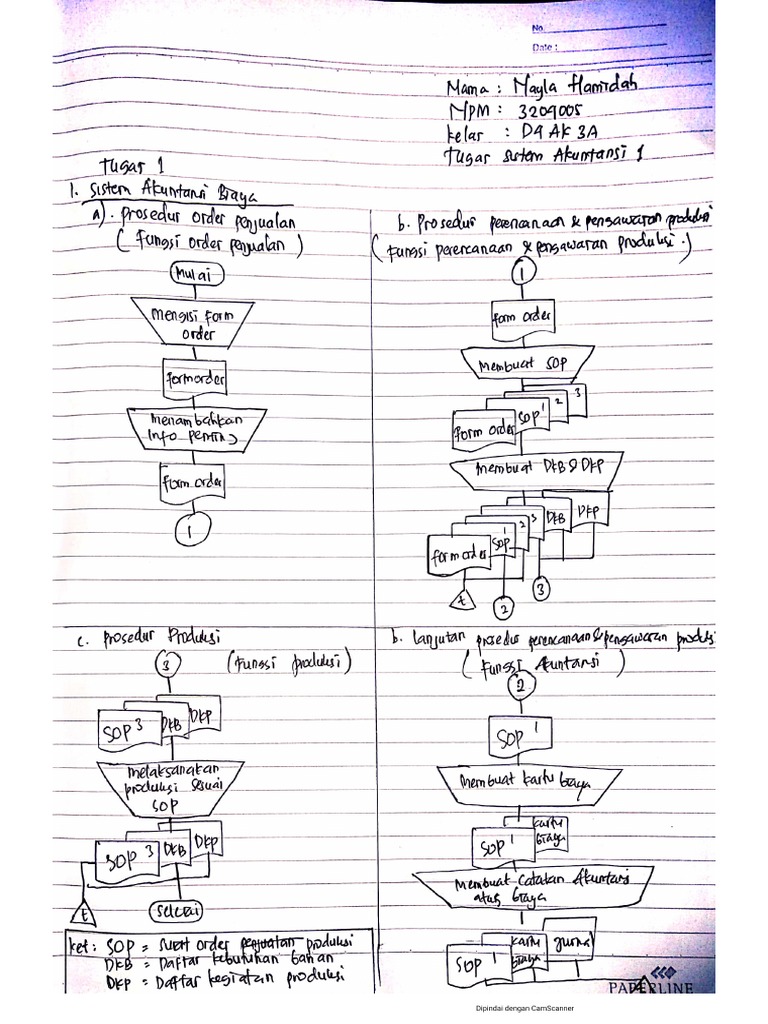 No.
Date :
Nama : Nayla Hamidah
NPM : 3209005
kelas : D4 AK 3A
Tugas sistem Akuntansi 1
Tugas 1
1. Sistem Akuntansi Biaya
a). Prosedur order penjualan
(Fungsi order penjualan)
Mulai
Mengisi form
order
form order
Menambahkan
info penting
form order
1
b. Prosedur perencanaan & pengawaran produksi
(Fungsi perencanaan & pengawaran produksi.)
1
form order
Membuat SOP
form order SOP 1 2 3
Membuat DKB & DKP
form order SOP 1 2 3 DKB DKP
t 2 3
c. Prosedur Produksi
(Fungsi produksi)
3
SOP 3 DKB DKP
Melaksanakan
produksi sesuai
SOP
SOP 3 DKB DKP
t
selesai
ket : SOP = surat order penjualan produksi
DKB = Daftar kebutuhan bahan
DKP = Daftar kegiatan produksi
b. Lanjutan prosedur perencanaan & pengawaran produksi
(Fungsi Akuntansi)
2
SOP 1
Membuat kartu biaya
SOP 1 kartu
biaya
Membuat Catatan Akuntansi
atas biaya
SOP 1 kartu
biaya jurnal
PAPERLINE
Dipindai dengan CamScanner